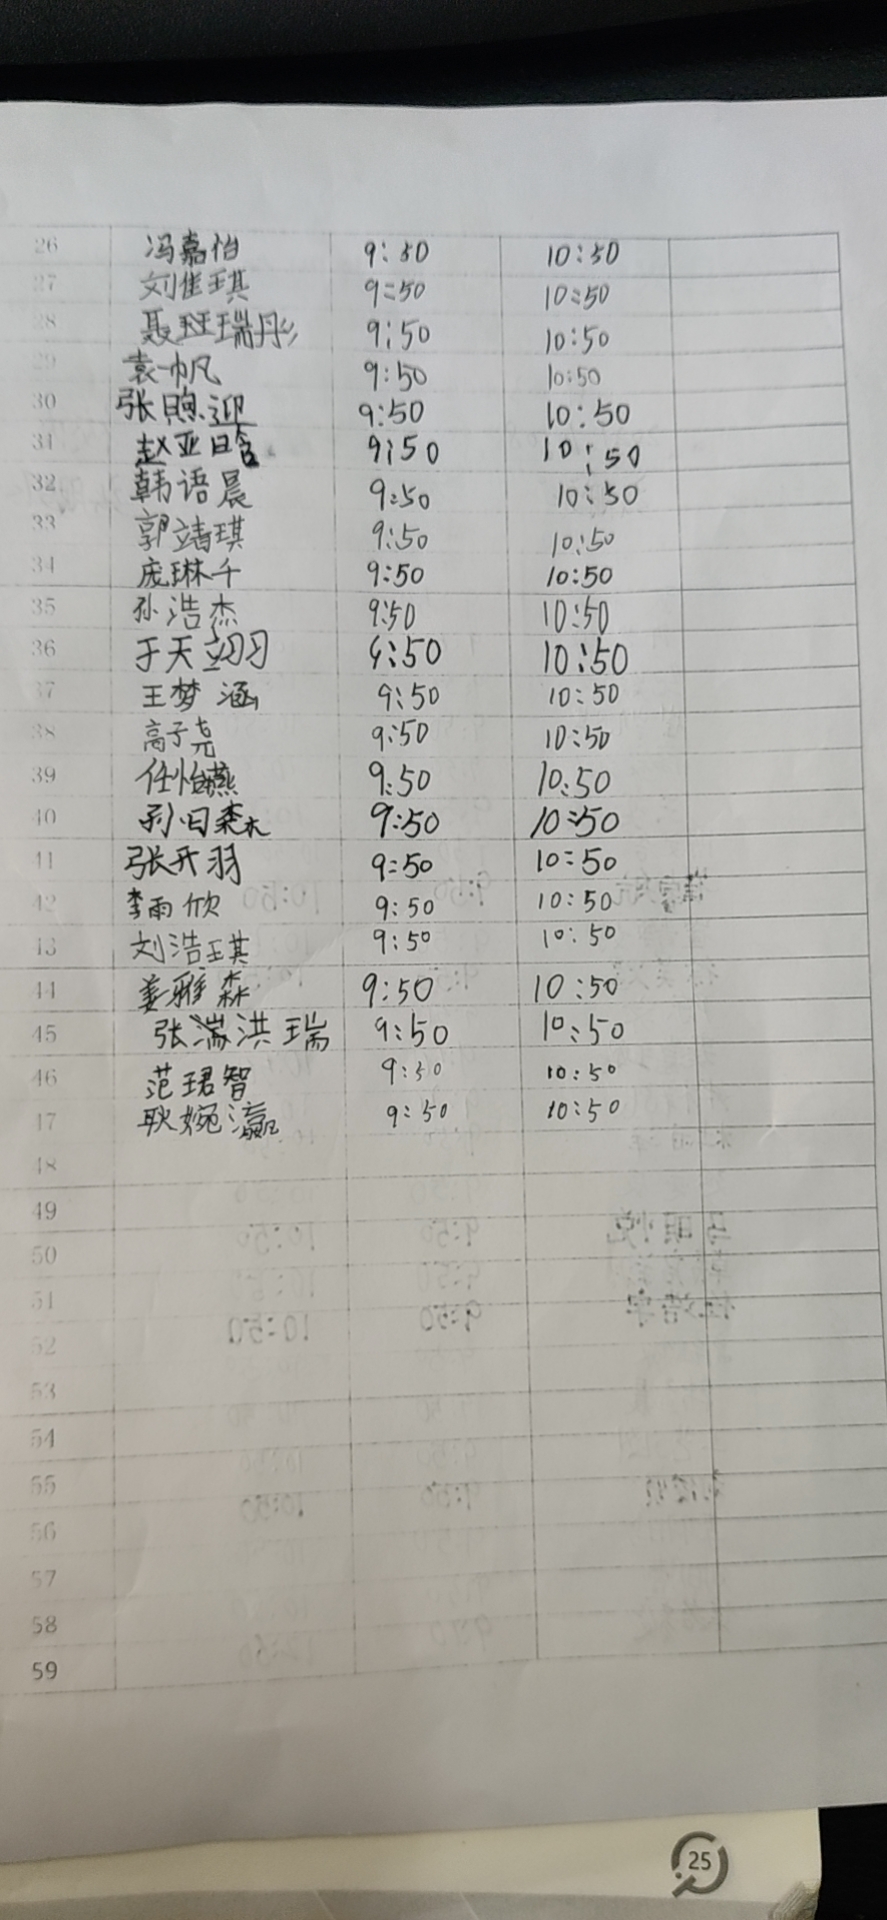 26 冯嘉怡 9:50 10:50
27 刘佳琪 9:50 10:50
28 聂班瑞彤 9:50 10:50
29 袁一帆 9:50 10:50
30 张煦迎 9:50 10:50
31 赵亚晗 9:50 10:50
32 韩语晨 9:50 10:50
33 郭靖琪 9:50 10:50
34 庞琳千 9:50 10:50
35 孙浩杰 9:50 10:50
36 于天翊 9:50 10:50
37 王梦涵 9:50 10:50
38 高子尧 9:50 10:50
39 任怡燕 9:50 10:50
40 9:50 10:50
41 张开羽 9:50 10:50
42 李雨欣 9:50 10:50
43 刘浩琪 9:50 10:50
44 姜雅森 9:50 10:50
45 张湍洪瑞 9:50 10:50
46 范珺智 9:50 10:50
47 耿婉瀛 9:50 10:50
48
49
50
51
52
53
54
55
56
57
58
59
25